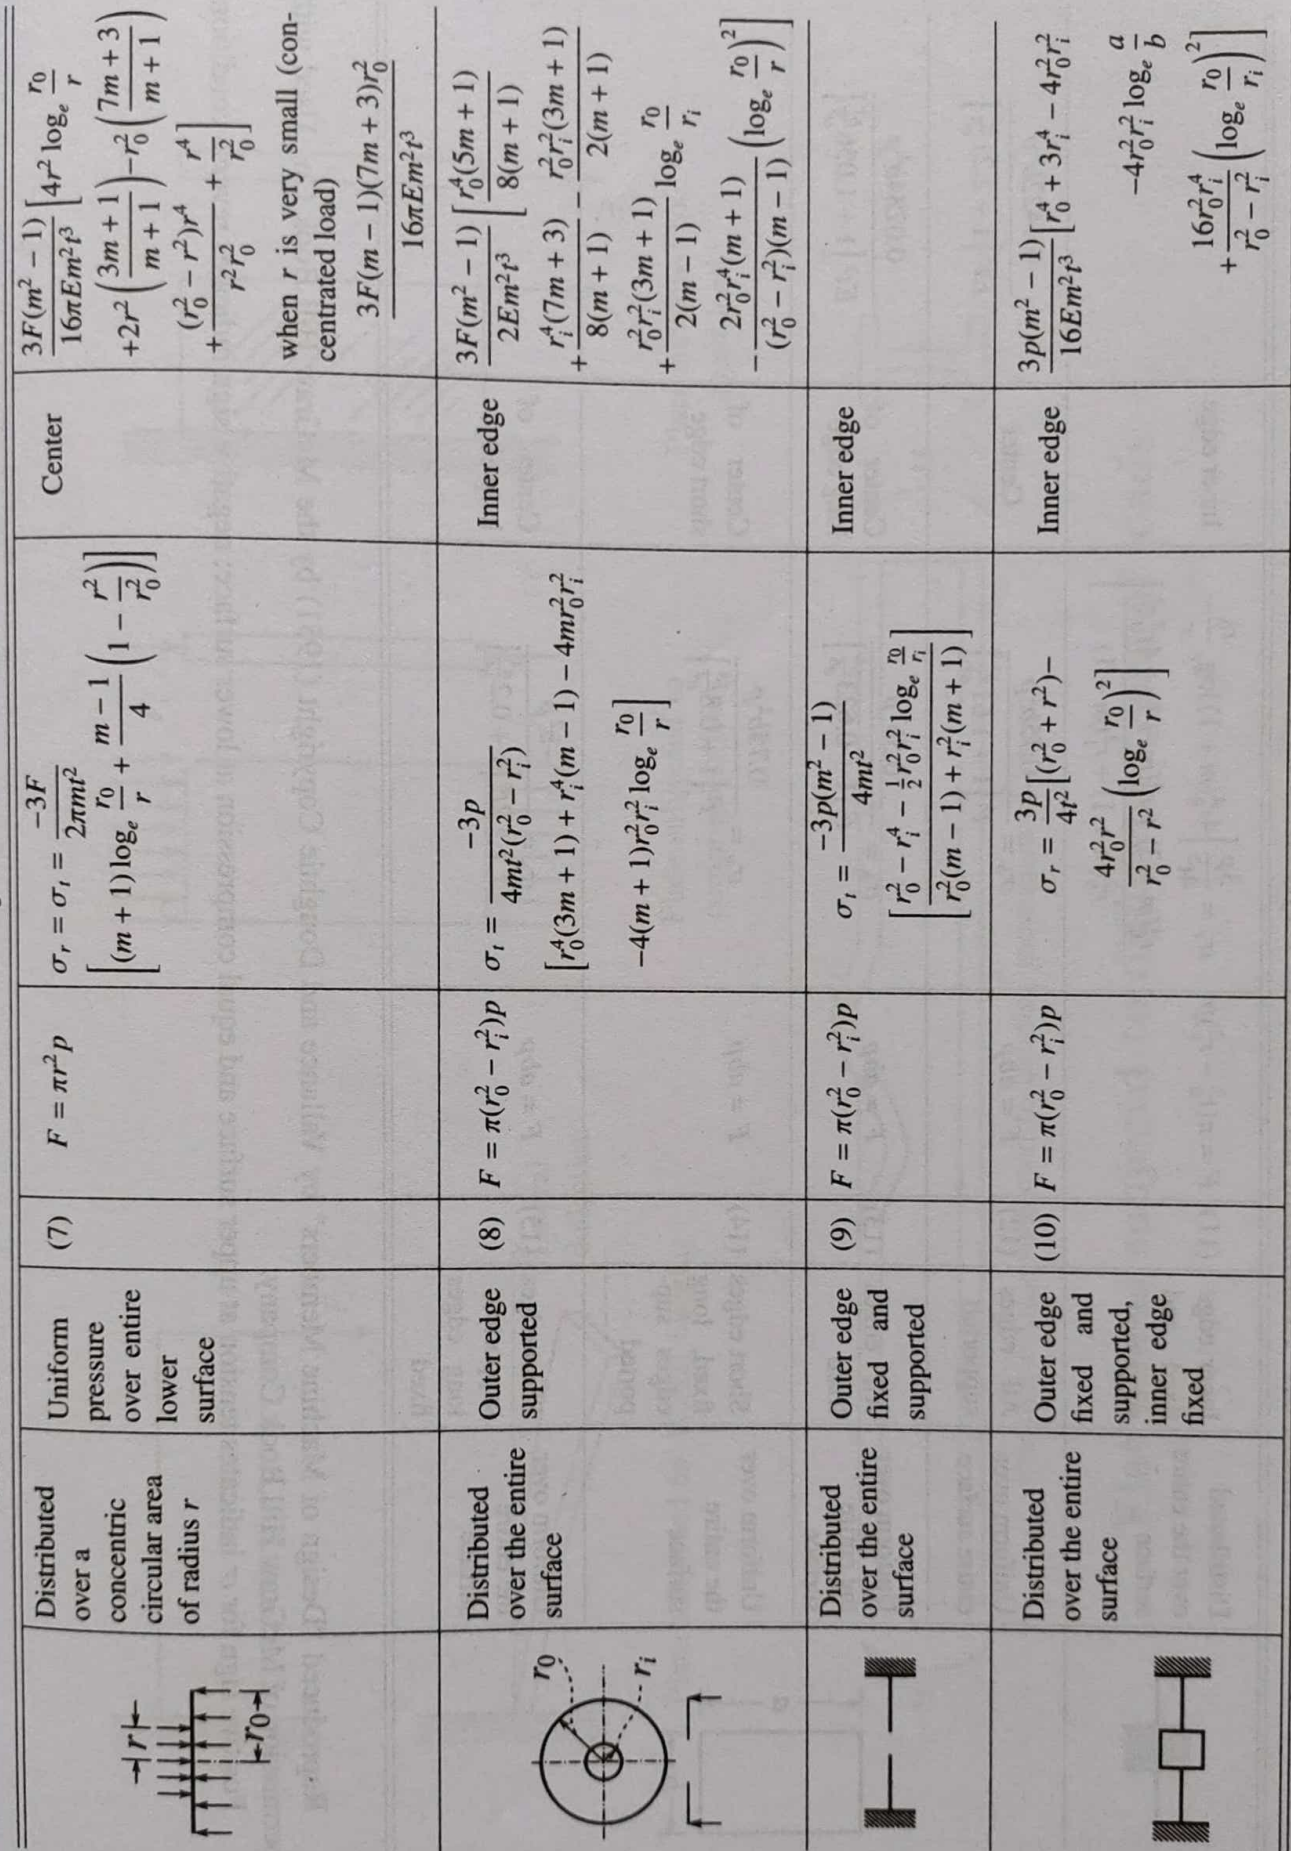 r
r₀
Distributed
over a
concentric
circular area
of radius r
Uniform
pressure
over entire
lower
surface
(7)
F = πr²p
σ_r = σ_t = \frac{-3F}{2πmt²}
[(m + 1) log_e \frac{r_0}{r} + \frac{m - 1}{4} (1 - \frac{r²}{r_0²})]
Center
\frac{3F(m² - 1)}{16πEm²t³} [4r² log_e \frac{r_0}{r}
+2r² (\frac{3m + 1}{m + 1}) - r_0² (\frac{7m + 3}{m + 1})
+ \frac{(r_0² - r²)r⁴}{r²r_0²} + \frac{r⁴}{r_0²}]
when r is very small (con-
centrated load)
\frac{3F(m - 1)(7m + 3)r_0²}{16πEm²t³}
r₀
r_i
Distributed
over the entire
surface
Outer edge
supported
(8)
F = π(r_0² - r_i²)p
σ_t = \frac{-3p}{4mt²(r_0² - r_i²)}
[r_0⁴(3m + 1) + r_i⁴(m - 1) - 4mr_0²r_i²
-4(m + 1)r_0²r_i² log_e \frac{r_0}{r}]
Inner edge
\frac{3F(m² - 1)}{2Em²t³} [\frac{r_0⁴(5m + 1)}{8(m + 1)}
+ \frac{r_i⁴(7m + 3)}{8(m + 1)} - \frac{r_0²r_i²(3m + 1)}{2(m + 1)}
+ \frac{r_0²r_i²(3m + 1)}{2(m - 1)} log_e \frac{r_0}{r_i}
- \frac{2r_0²r_i⁴(m + 1)}{(r_0² - r_i²)(m - 1)} (log_e \frac{r_0}{r})²]
Distributed
over the entire
surface
Outer edge
fixed and
supported
(9)
F = π(r_0² - r_i²)p
σ_t = \frac{-3p(m² - 1)}{4mt²}
[\frac{r_0² - r_i⁴ - \frac{1}{2} r_0²r_i² log_e \frac{r_0}{r_i}}{r_0²(m - 1) + r_i²(m + 1)}]
Inner edge
Distributed
over the entire
surface
Outer edge
fixed and
supported,
inner edge
fixed
(10)
F = π(r_0² - r_i²)p
σ_r = \frac{3p}{4t²} [(r_0² + r²)-
\frac{4r_0²r²}{r_0² - r²} (log_e \frac{r_0}{r})²]
Inner edge
\frac{3p(m² - 1)}{16Em²t³} [r_0⁴ + 3r_i⁴ - 4r_0²r_i²
-4r_0²r_i² log_e \frac{a}{b}
+ \frac{16r_0²r_i⁴}{r_0² - r_i²} (log_e \frac{r_0}{r_i})²]